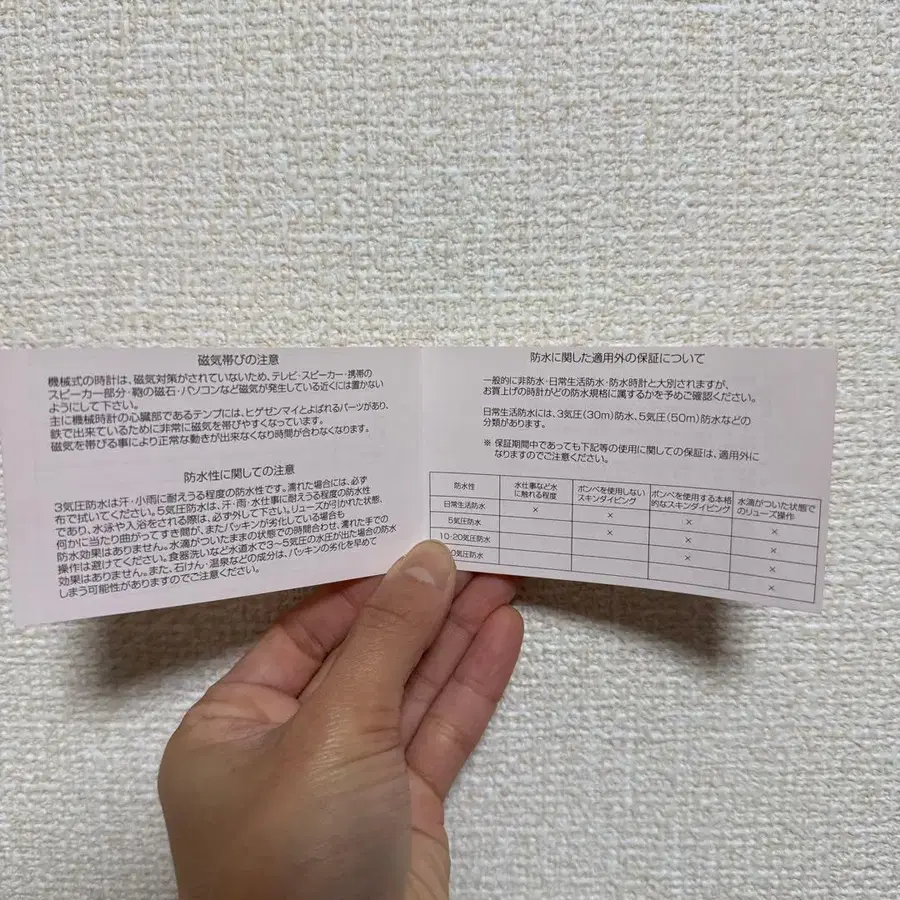 磁気帯びの注意
機械式の時計は、磁気対策がされていないため、テレビ・スピーカー・携帯の
スピーカー部分・鞄の磁石・パソコンなど磁気が発生している近くには置かない
ようにして下さい。
主に機械時計の心臓部であるテンプには、ヒゲゼンマイとよばれるパーツがあり、
鉄で出来ているために非常に磁気を帯びやすくなっています。
磁気を帯びる事により正常な動きが出来なくなり時間が合わなくなります。
防水性に関しての注意
3気圧防水は汗・小雨に耐えうる程度の防水性です。濡れた場合には、必ず
布で拭いてください。5気圧防水は、汗・雨・水仕事に耐えうる程度の防水性
であり、水泳や入浴をされる際は、必ず外して下さい。リューズが引かれた状態、
何かに当たり曲がってすき間が、またパッキンが劣化している場合も
防水効果はありません。水滴がついたままの状態での時間合わせ、濡れた手での
操作は避けてください。食器洗いなど水道水で3~5気圧の水圧が出た場合の防水
効果はありません。また、石けん・温泉などの成分は、パッキンの劣化を早めて
しまう可能性がありますのでご注意ください。
防水に関した適用外の保証について
一般的に非防水・日常生活防水・防水時計と大別されますが、
お買上げの時計がどの防水規格に属するかを予めご確認ください。
日常生活防水には、3気圧(30m)防水、5気圧(50m)防水などの
分類があります。
※ 保証期間中であっても下記等の使用に関しての保証は、適用外に
なりますのでご注意ください。
防水性 水仕事など水に触れる程度 ボンベを使用しないスキンダイビング ボンベを使用する本格的なスキンダイビング 水滴がついた状態でのリューズ操作
日常生活防水 × × × ×
5気圧防水 × × ×
10-20気圧防水 × ×
0気圧防水 ×